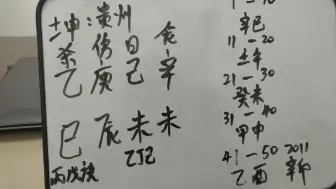 坤:贵州
杀 伤 日 食
乙 庚 己 辛
巳 辰 未 未
丙戊庚 乙丁己
1-10
辛巳
11-20
壬午
21-30
癸未
31-40
甲申
41-50 2011
乙酉 辛卯